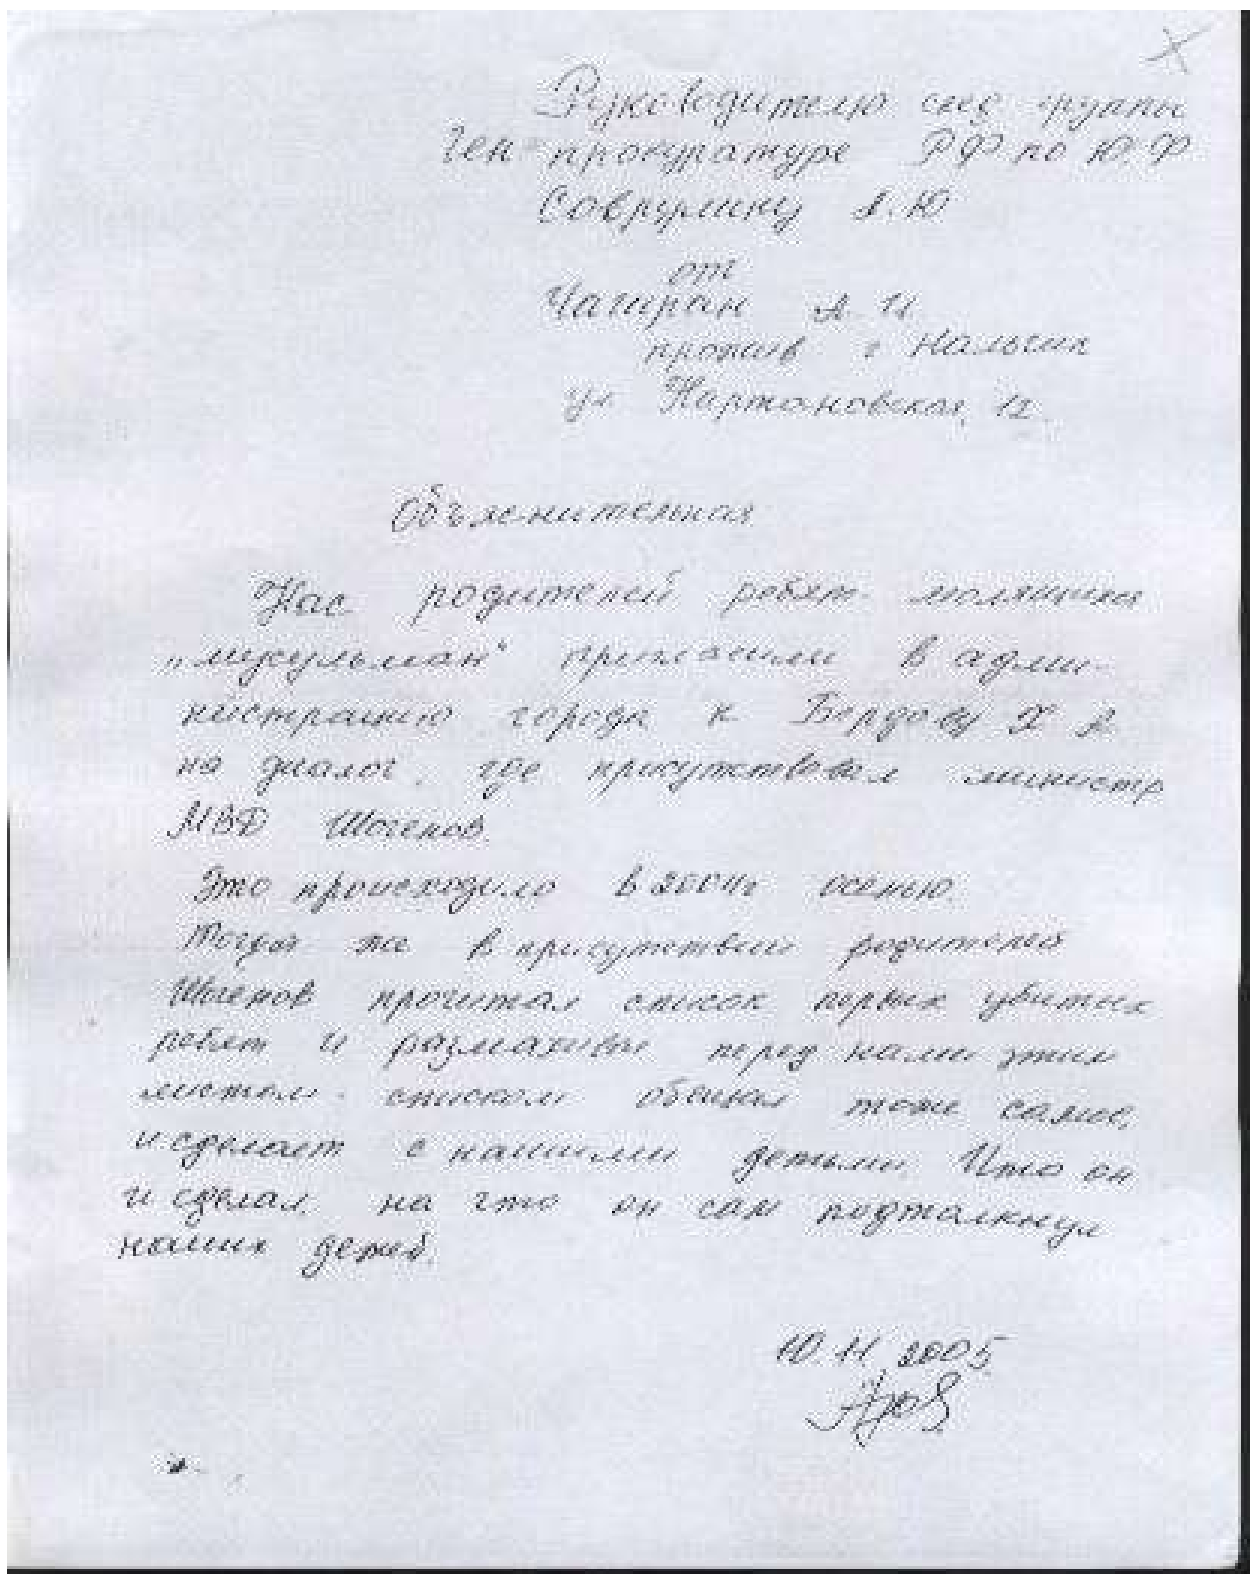 Руководителю след группы
Ген-прокуратуре РФ по Ю.Ф
Соврулину А.Ю
от
А. И
прожив г Нальчик
ул Нартановская, 12.
Объяснительная
Нас родителей ребят молящихся
„мусульман“ пригласили в адми-
нистрацию города к Бердову Х А.
на диалог, где присутствовал министр
МВД Шогенов.
Это происходило в 2004г осенью.
Тогда же в присутствии родителей
Шогенов прочитал список первых убитых
ребят и размахивая перед нами этим
листом-списком обещал тоже самое,
и сделает с нашими детьми. Что он
и сделал, на что он сам подталкнул
наших детей.
10.11.2005.